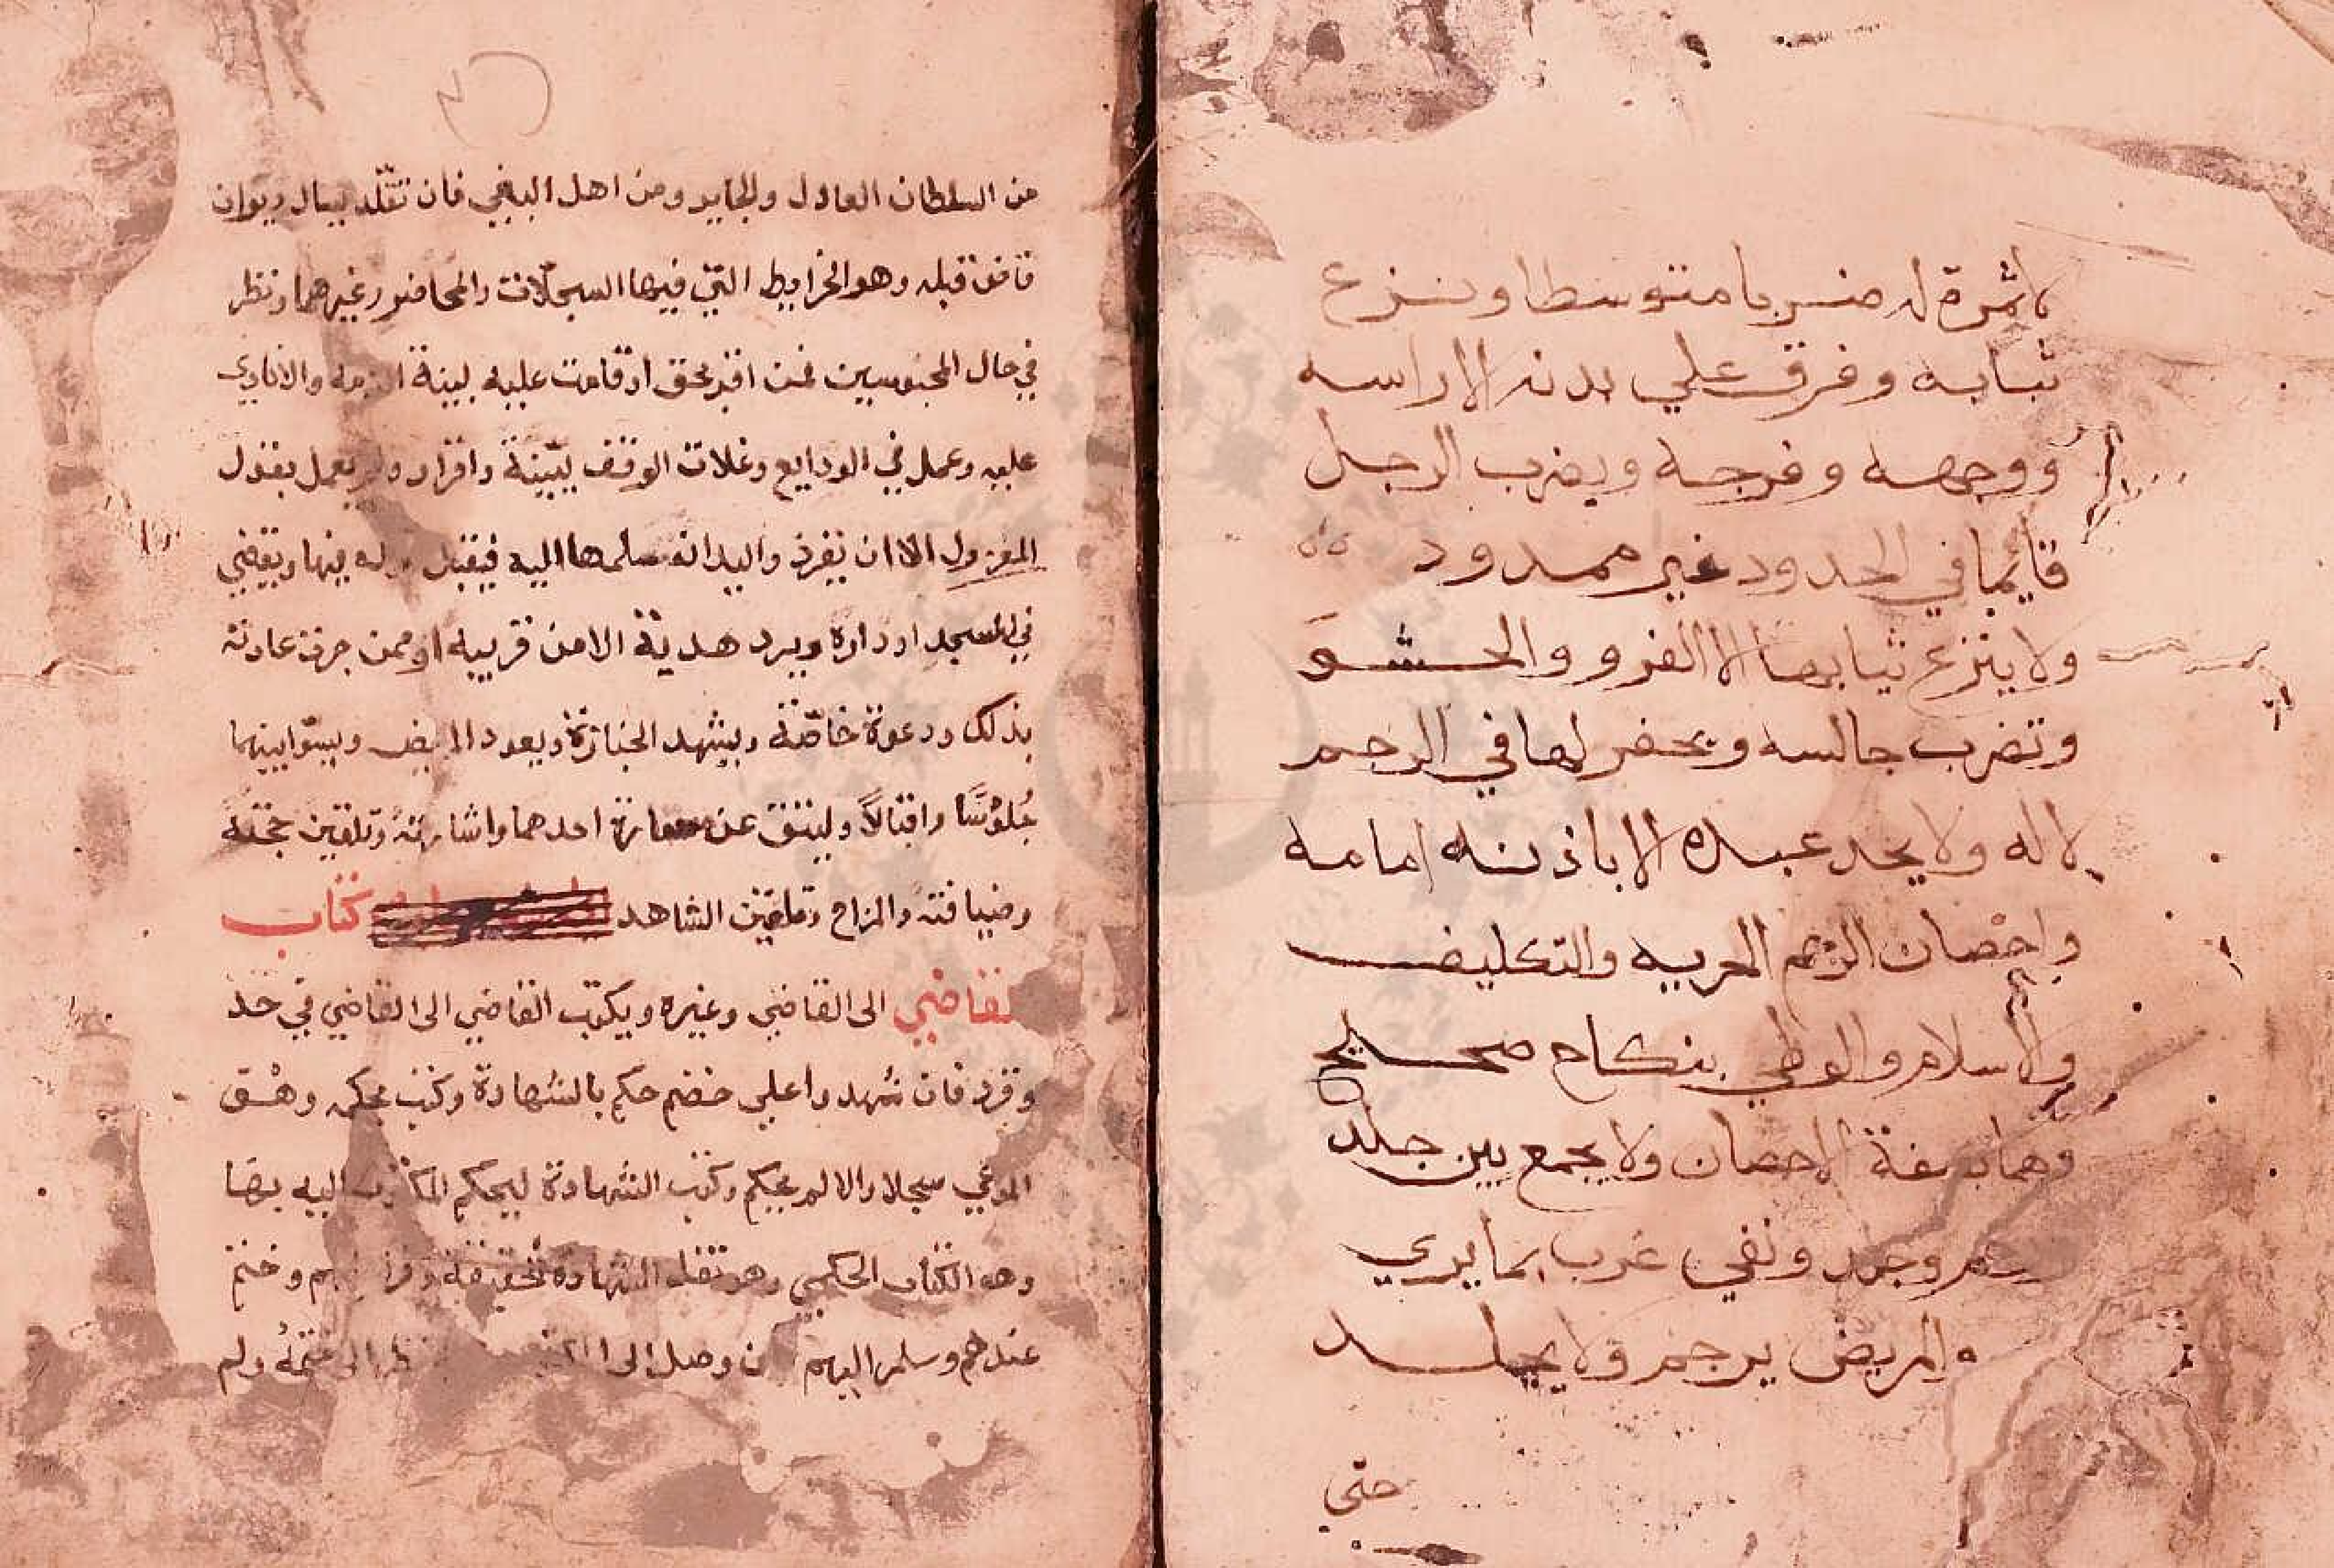 لاثمرة له ضربا متوسطا ونزع
ثيابه وفرق علي بدنه الا راسه
ووجهه وفرجه ويضرب الرجل
قايما في الحدود غير ممدود
ولا ينزع ثيابها الا الفرو والحشو
وتضرب جالسه ويحفر لها في الرجم
لا له ولا يحد عبده الا باذن امامه
واحصان الرجم الحريه والتكليف
والاسلام والوطي بنكاح صحيح
وهما بصفة الاحصان ولا يجمع بين جلد
ورجم وجلد ونفي غرب بما يري
والمريض يرجم ولا يجلد
حتي
من السلطان العادل والجاير ومن اهل البغي فان تقلد يسال ديوان
قاض قبله وهو الخرايط التي فيها السجلات والمحاضر وغيرهما ونظر
في حال المحبوسين فمن اقر بحق او قامت عليه بينة الزمه والا نادي
عليه وعمل في الودايع وغلات الوقف ببينة واقرار ولم يعمل بقول
المعزول الا ان يقر ذو اليد انه سلمها اليه فيقبل قوله فيها ويقضي
في المسجد او داره ويرد هدية الا من قريبه او ممن جرت عادته
بذلك ودعوة خاصة ويشهد الجنازة ويعود المريض ويسوا بينهما
جلوسا واقبالا وليتق عن مسارة احدهما واشارته وتلقين حجته
وضيافته والمزاح وتلقين الشاهد كتاب
القاضي الى القاضي وغيره ويكتب القاضي الى القاضي في غير حد
وقود فان شهدوا علي خصم حكم بالشهادة وكتب بحكمه وهو
المدعي سجلا والا لم يحكم وكتب الشهادة ليحكم المكتوب اليه بها
وهو الكتاب الحكمي وهو نقل الشهادة في الحقيقة وقرا عليهم وختم
عندهم وسلم اليهم فان وصل الى نظر الى ختمه ولم